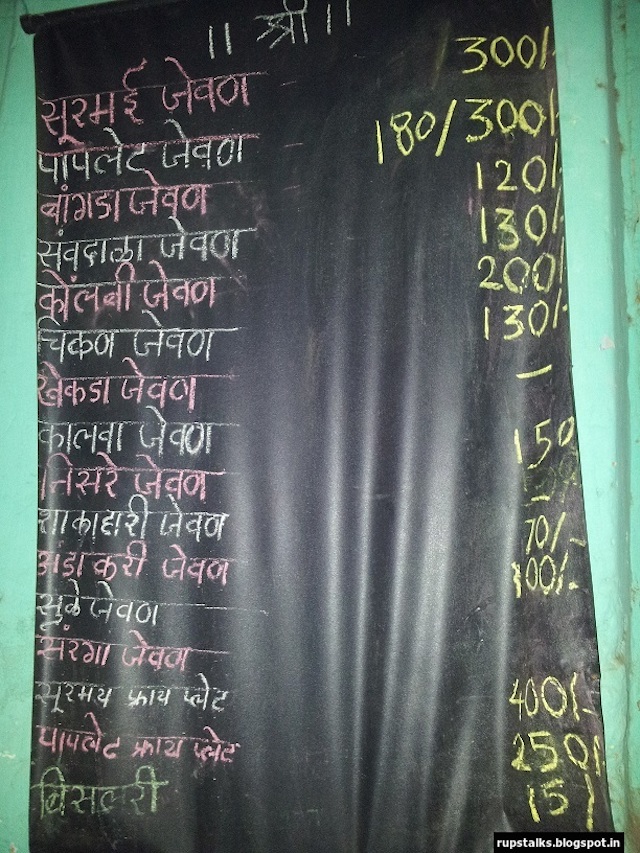 ॥ श्री ॥
सूरमई जेवण - 300/-
पापलेट जेवण - 180/300/-
बांगडा जेवण - 120/-
संवदाळा जेवण 130/-
कोलबी जेवण 200/-
चिकण जेवण 130/-
खेकडा जेवण —
कालवा जेवण 150
तिसरे जेवण -
शाकाहारी जेवण 70/-
अंडा करी जेवण 100/-
सुळे जेवण
सरंगा जेवण
सूरमय फ्राय प्लेट 400/-
पापलेट फ्राय प्लेट 250/-
बिसलरी 15/
rupstalks.blogspot.in